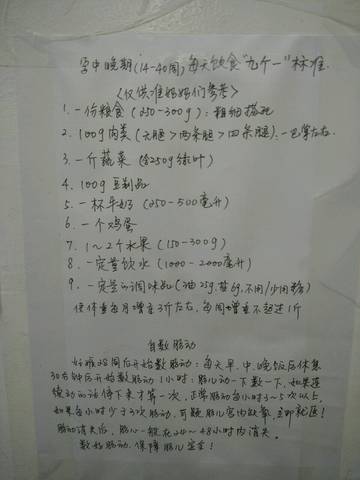 孕中晚期(14-40周)每天饮食“九个一”标准
〈仅供准妈妈们参考〉
1.一份粮食(250-300g):粗细搭配
2.100g肉类(无腿>两条腿>四条腿):一巴掌左右
3.一斤蔬菜(含250g绿叶)
4.100g豆制品
5.一杯牛奶(250-500毫升)
6.一个鸡蛋
7.1~2个水果(150-300g)
8.一定量饮水(1000-2000毫升)
9.一定量的调味品(油25g,盐6g,不用/少用糖)
使体重每月增高3斤左右,每周增重不超过1斤
自数胎动
妊娠28周后开始数胎动:每天早、中、晚饭后休息
30分钟后开始数胎动1小时:胎儿动一下数一下,如果连
续动的话停下来才算一次,正常胎动每小时3~5次以上,
如果每小时少于3次胎动,可疑胎儿宫内缺氧,立即就医!
胎动消失后,胎心一般在24~48小时内消失。
数好胎动,保障胎儿安全!